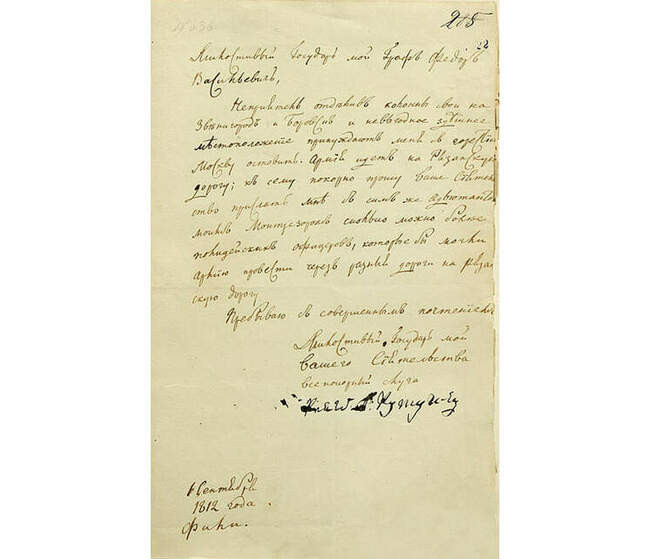 215
Милостивый Государь мой Графъ Федоръ
Васильевичь,
Непріятель отделивъ колонны свои на
Звенигородъ и Боровскъ и невыгодное здешнее
местоположение принуждаютъ меня съ горестію
Москву оставить. Армія идетъ на Рязанскую
дорогу; къ сему покорно прошу Ваше Сіятель
ство прислать мне съ симъ же адъютантомъ
моимъ Монтрезоромъ сколько можно более
полицейскихъ офицеровъ, которые бы могли
армію провести черезъ разныя дороги на Ряза
скую дорогу
Пребываю съ совершеннымъ почтеніемъ
Милостивый Государь мой
Вашего Сіятельства
всепокорный слуга
Князь Г. Кутузовъ
1 Сентября
1812 года.
Фили.